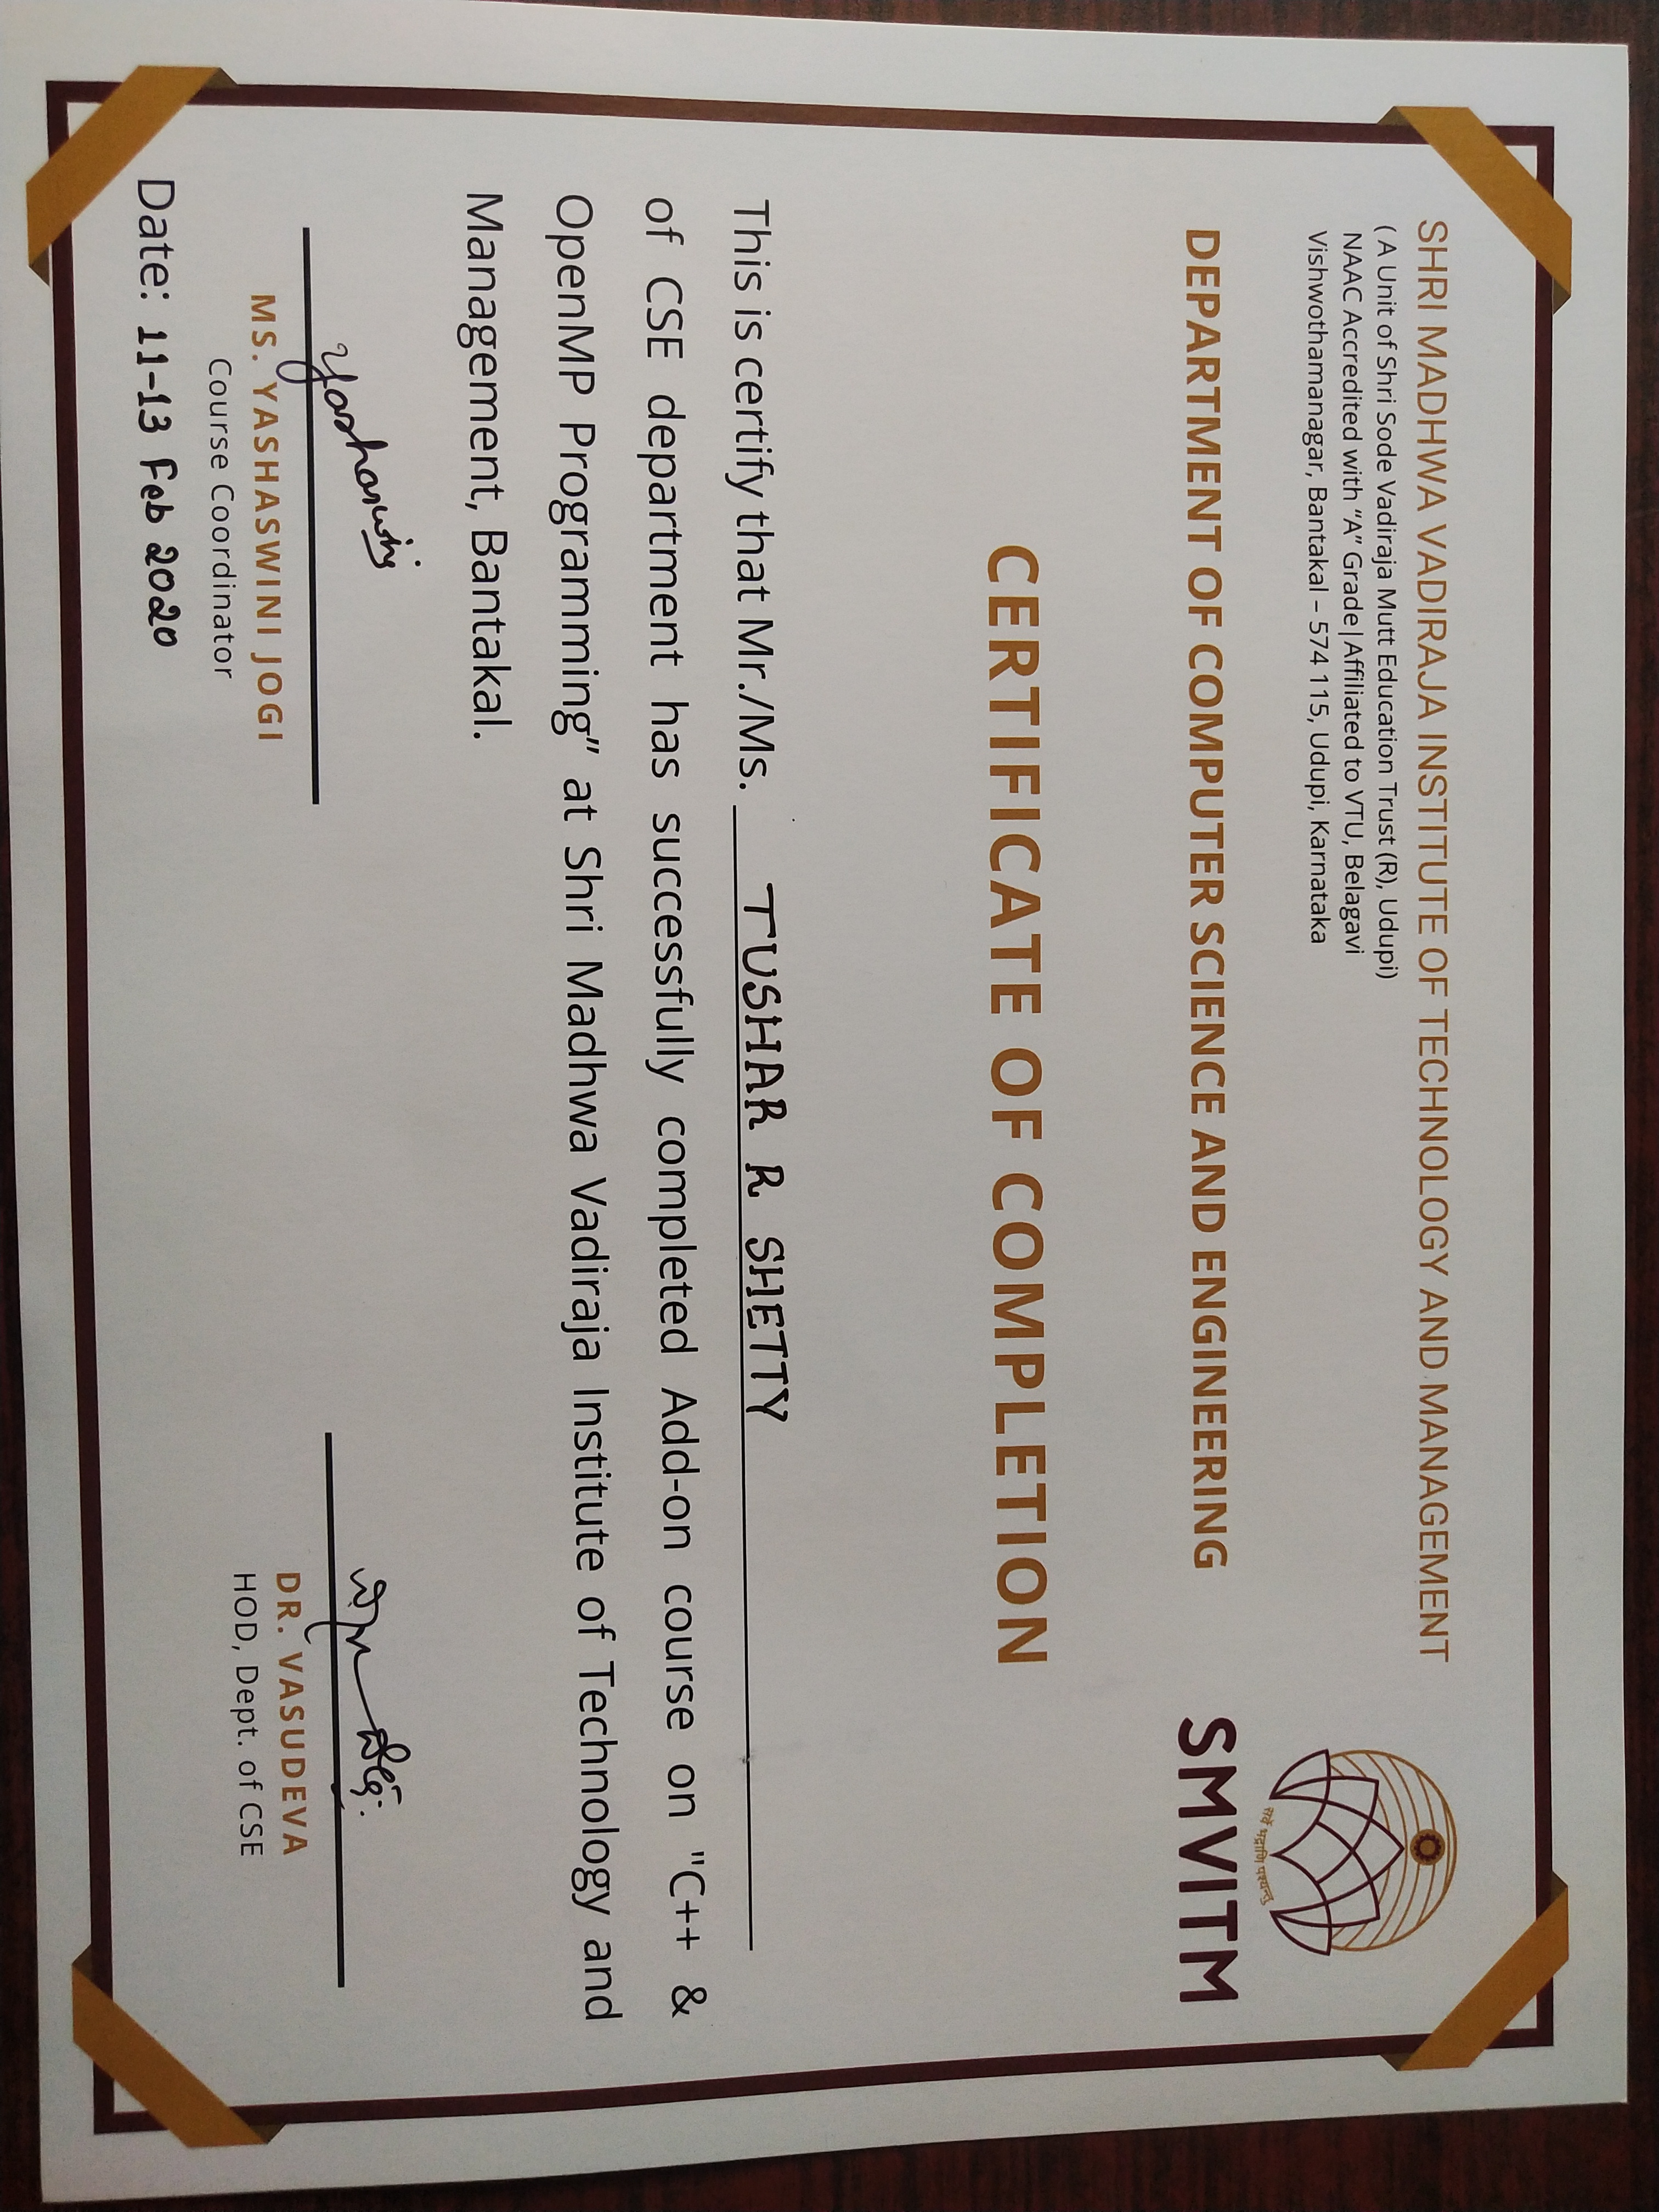 SHRI MADHWA VADIRAJA INSTITUTE OF TECHNOLOGY AND MANAGEMENT
( A Unit of Shri Sode Vadiraja Mutt Education Trust (R), Udupi)
NAAC Accredited with “A” Grade|Affiliated to VTU, Belagavi
Vishwothamanagar, Bantakal – 574 115, Udupi, Karnataka
सर्वे भद्राणि पश्यन्तु
SMVITM
DEPARTMENT OF COMPUTER SCIENCE AND ENGINEERING
CERTIFICATE OF COMPLETION
This is certify that Mr./Ms. TUSHAR R SHETTY
of CSE department has successfully completed Add-on course on "C++ &
OpenMP Programming” at Shri Madhwa Vadiraja Institute of Technology and
Management, Bantakal.
Yashaswini
MS. YASHASWINI JOGI
Course Coordinator
DR. VASUDEVA
HOD, Dept. of CSE
Date: 11-13 Feb 2020